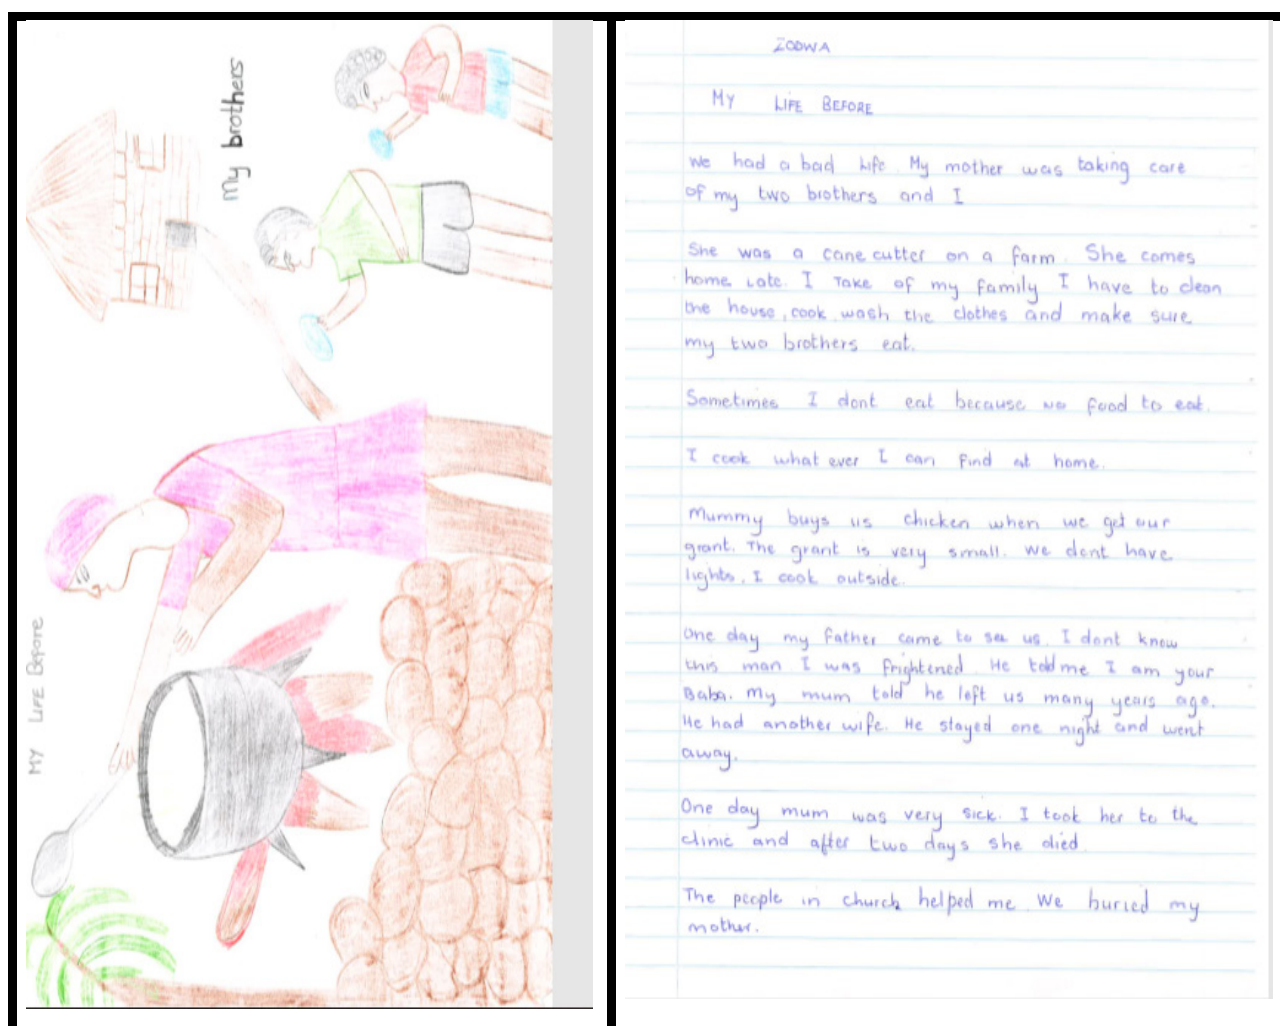 My brothers
MY LIFE Before
ZODWA
MY LIFE BEFORE
We had a bad life. My mother was taking care
of my two brothers and I
She was a cane cutter on a farm. She comes
home late. I Take of my family I have to clean
the house, cook wash the clothes and make sure
my two brothers eat.
Sometimes I dont eat because no food to eat.
I cook what ever I can find at home.
Mummy buys us chicken when we get our
grant. The grant is very small. We dont have
lights, I cook outside.
One day my father came to see us. I dont know
this man I was frightened. He told me I am your
Baba. My mum told he left us many years ago.
He had another wife. He stayed one night and went
away.
One day mum was very sick. I took her to the
clinic and after two days she died.
The people in church helped me. We buried my
mother.